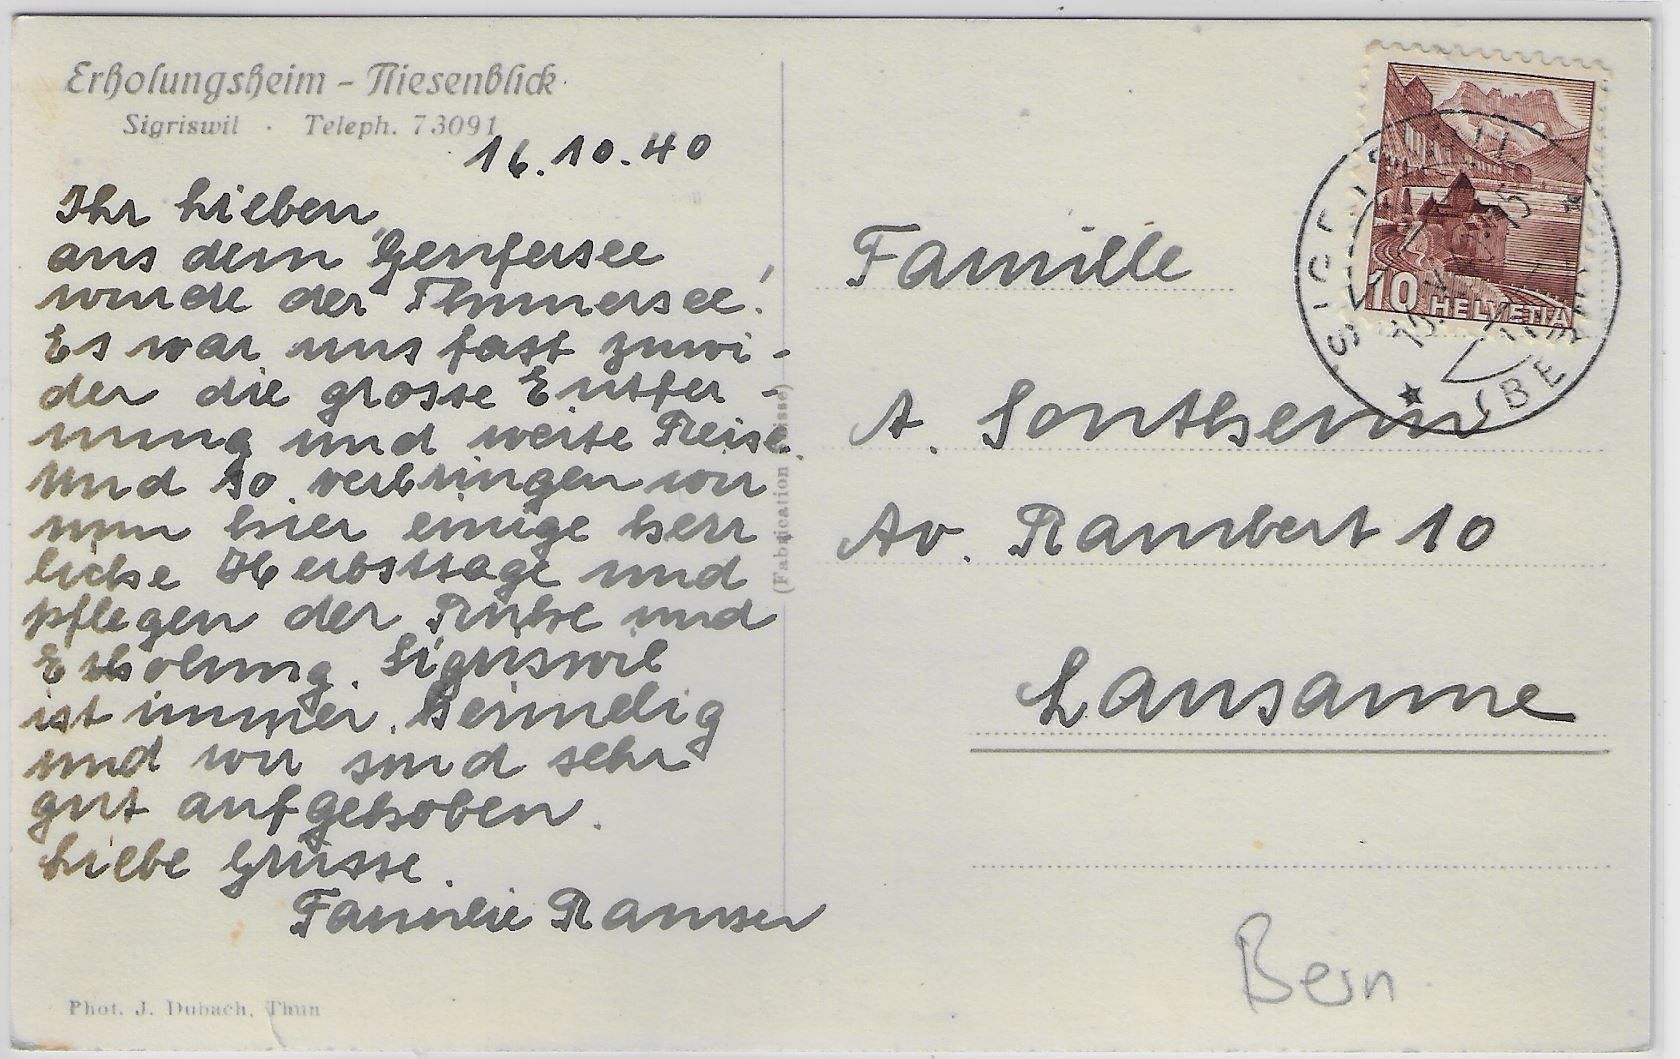 Erholungsheim – Niesenblick
Sigriswil · Teleph. 73091
16.10.40
Ihr Lieben,
aus dem Genfersee
wurde der Thunersee!
Es war uns fast zuwi-
der die grosse Entfer-
nung und weite Reise.
Und so verbringen wir
nun hier einige herr
liche Herbsttage und
pflegen der Ruhe und
Erholung. Sigriswil
ist immer heimelig
und wir sind sehr
gut aufgehoben.
Liebe Grüsse.
Familie Ramser
Phot. J. Dubach, Thun
(Fabrication Suisse)
10 HELVETIA
SIGRISWIL
(BERN)
Famille
A. Sontheim
Av. Rambert 10
Lausanne
Bern